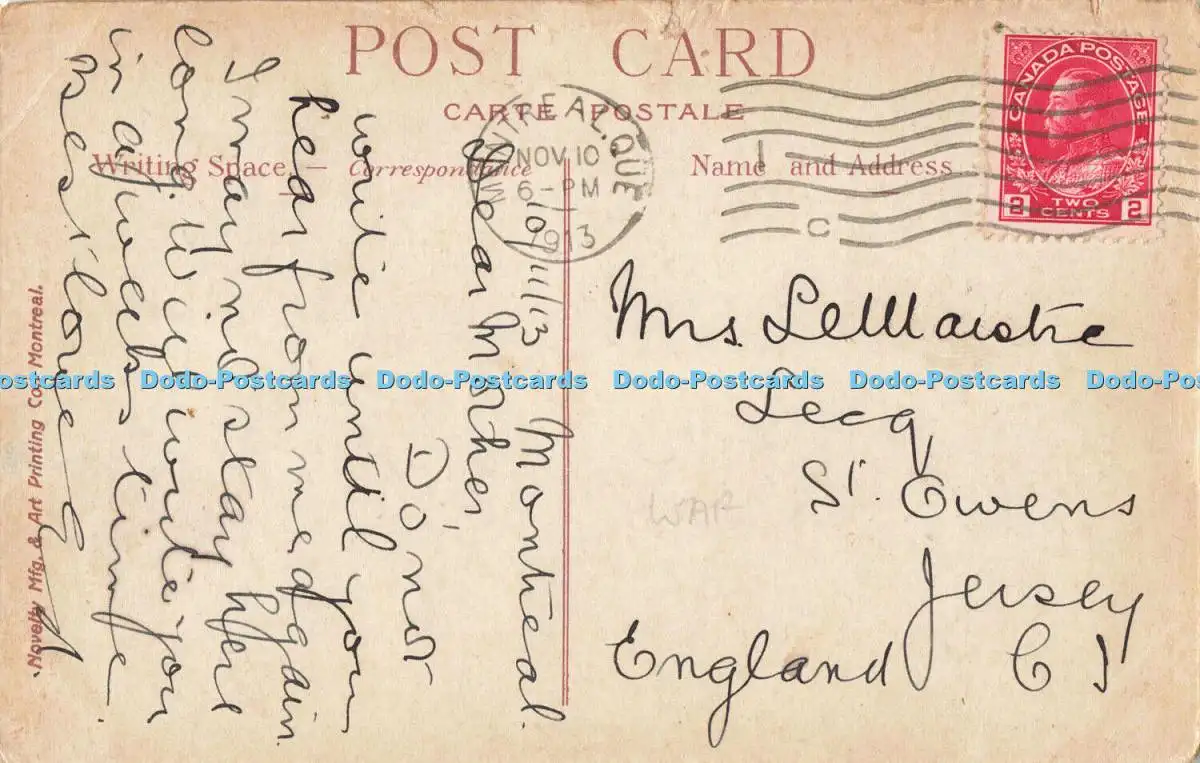 POST CARD
CARTE POSTALE
Writing Space — Correspondance
Name and Address
MONTREAL, QUE
NOV 10
6 - PM
1913
C
CANADA POSTAGE
2 TWO CENTS 2
10/11/13 Montreal.
Dear Mother,
Do not
write until you
hear from me again.
I may not stay here
long. Will write you
in a weeks time.
Best love
Mrs. LeMaistre
Lecq
St. Owens
Jersey
England C I
WAR
Novelty Mfg. & Art Printing Co. Montreal.
Dodo-Postcards Dodo-Postcards Dodo-Postcards Dodo-Postcards Dodo-Postcards